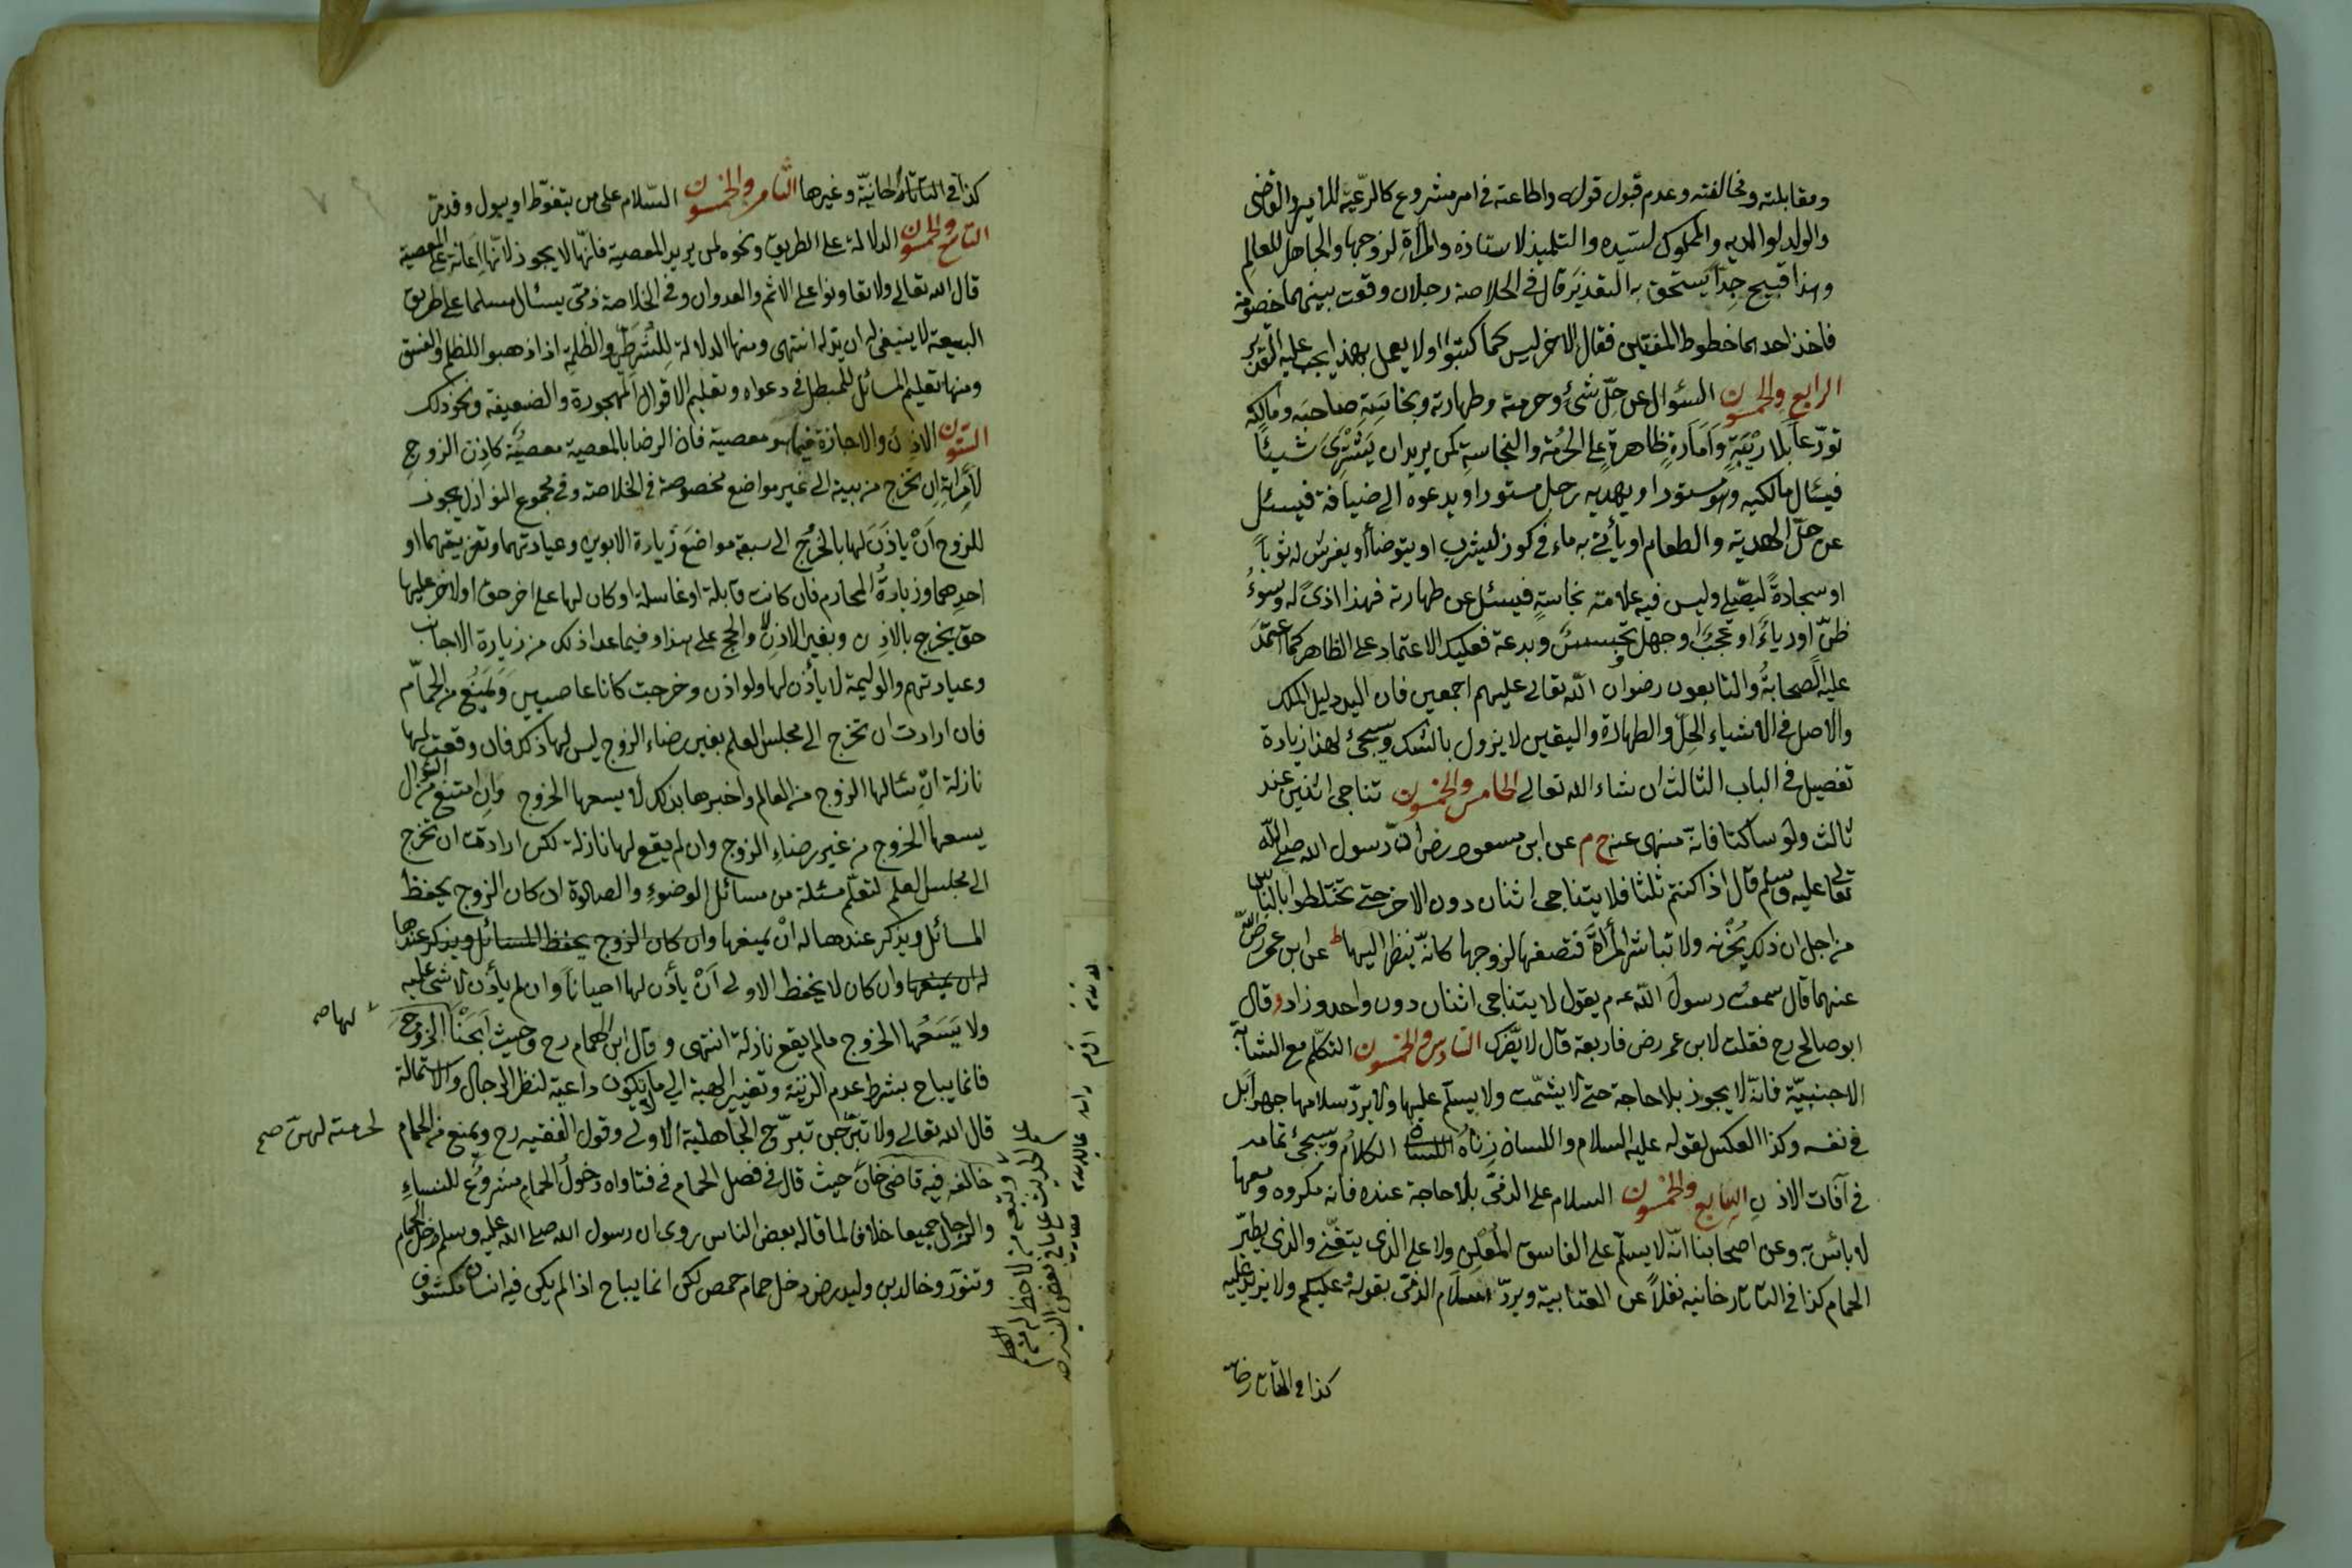 ومقابلته ومخالفته وعدم قبول قوله واطاعته فى امر مشروع كالرّعيّة للامير والقاضى
والولد لوالديه والمملوك لسيّده والتلميذ لاستاذه والمرأة لزوجها والجاهل للعالم
وهذا قبيح جدّا يستحق به التعذير قال فى الخلاصة رجلان وقعت بينهما خصومة
فاخذ احدهما خطوط المفتين فقال الاخر ليس كما كتبوا او لا يعمل بهذا يجب عليه التعزير
الرابع والخمسون السئوال عن حلّ شئ وحرمته وطهارته ونجاسته صاحبه ومالكه
تورّعا بلا ريبة وامارة ظاهرة على الحرمة والنجاسة كمن يريد ان يشترى شيئا
فيسئال مالكيه وهو مستور او يهديه رجل مستور او يدعوه الى ضيافة فيسئل
عن حلّ الهديّة والطعام او يأتى به ماء فى كوز ليشرب او يتوضأ او يفرش له ثوبا
او سجادة ليصلى وليس فيه علامة نجاسة فيسئل عن طهارته فهذا اذى له وسوء
ظنّ او رياء او عجب وجهل تجسس وبدعة فعليك الاعتماد على الظاهر كما اعتمد
عليه الصحابة والتابعون رضوان الله تعالى عليهم اجمعين فان اليد دليل الملك
والاصل فى الاشياء الحلّ والطهارة واليقين لا يزول بالشك وسيجئ لهذا زيادة
تفصيل فى الباب الثالث ان شاء الله تعالى الخامس والخمسون تناجى اثنين عند
ثالث ولو ساكتا فانّه منهى عنه خ م عن ابن مسعود رض انّ رسول الله صلى الله
تعالى عليه وسلم قال اذا كنتم ثلثا فلا يتناجى اثنان دون الاخر حتى تختلطوا بالناس
من اجل ان ذلك يحزنه ولا تباشر المرأة فتصفها لزوجها كانّه ينظر اليها ط عن ابن عمر رضى الله
عنهما قال سمعت رسول الله عم يقول لا يتناجى اثنان دون واحد وزاد وقال
ابو صالح رح فقلت لابن عمر رض فاربعة قال لا يضرك السادس والخمسون التكلّم مع الشابّة
الاجنبيّة فانّه لا يجوز بلا حاجة حتى لا يشمّت ولا يسلّم عليها ولا يردّ سلامها جهرا بل
فى نفسه وكذا العكس لقوله عليه السلام واللسان زناه الكلام وسيجئ تمامه
فى آفات الاذن السابع والخمسون السلام على الذمّى بلا حاجة عنده فانه مكروه ومعها
لا بائس به وعن اصحابنا انّه لا يسلّم على الفاسق المعلن ولا على الذى يتغنّى والذى يطيّر
الحمام كذا فى التاتارخانيه نقلا عن العتابية ويردّ سلام الذمّى بقوله وعليكم ولا يزيد عليه
كذا فى التاتارخا
كذا فى التاتارخانيّة وغيرها الثامن والخمسون السّلام على من يتغوّط او يبول وقد مرّ
التاسع والخمسون الدلالة على الطريق ونحوه لمن يريد المعصية فانّها لا يجوز لانّها اعانة على المعصية
قال الله تعالى ولا تعاونوا على الاثم والعدوان وفى الخلاصة ذمّى يسئال مسلما على طريق
البيعة لا ينبغى له ان يدله انتهى ومنها الدلالة للشرطىّ والظلمة اذا ذهبوا للظلم والفسق
ومنها تعليم المسائل للمبطل فى دعواه وتعليم الاقوال المهجورة والضعيفة ونحو ذلك
الستون الاذن والاجازة فيما هو معصية فان الرضا بالمعصية معصية كاذن الزوج
لامرأته ان تخرج من بيته الى غير مواضع مخصوصة فى الخلاصة وفى مجموع النوازل يجوز
للزوج ان ياذن لها بالخروج الى سبعة مواضع زيارة الابوين وعيادتهما وتعزيتهما او
احدهما وزيارة المحارم فان كانت قابلة او غاسلة او كان لها على اخر حق او لاخر عليها
حق يخرج بالاذن وبغير الاذن والحج على هذا وفيما عدا ذلك من زيارة الاجانب
وعيادتهم والوليمة لا يأذن لها ولو اذن وخرجت كانا عاصيين وتمنع من الحمّام
فان ارادت ان تخرج الى مجلس العلم بغير رضاء الزوج ليس لها ذلك فان وقعت لها
نازلة ان سئالها الزوج من العالم واخبرها بذلك لا يسعها الخروج وان امتنع من السؤال
يسعها الخروج من غير رضاء الزوج وان لم يقع لها نازلة لكن ارادت ان تخرج
الى مجلس العلم لتعلم مسئلة من مسائل الوضوء والصلوة ان كان الزوج يحفظ
المسائل ويذكر عندها له ان يمنعها وان كان الزوج يحفظ المسائل ويذكر عندها
له ان يمنعها وان كان لا يحفظ الاولى ان يأذن لها احيانا وان لم يأذن لا شئ عليه
ولا يسعها الخروج ما لم يقع نازلة انتهى وقال ابن الهمام رح وحيث ابحنا الخروج
لها صح
فانما يباح بشرط عدم الزينة وتغيير الهيئة الى ما لا يكون داعية لنظر الرجال والاستمالة
قال الله تعالى ولا تبرجن تبرّج الجاهلية الاولى وقول الفقيه رح ويمنع من الحمام
لحرمته لهنّ صح
خالفه فيه قاضى خان حيث قال فى فصل الحمام فى فتاواه دخول الحمام مشروع للنساء
والرجال جميعا خلاف لما قاله بعض الناس روى ان رسول الله صلى الله عليه وسلم دخل الحمام
وتنوّر وخالد بن وليد رض دخل حمام حمص لكن انما يباح اذا لم يكن فيه انسان مكشوف